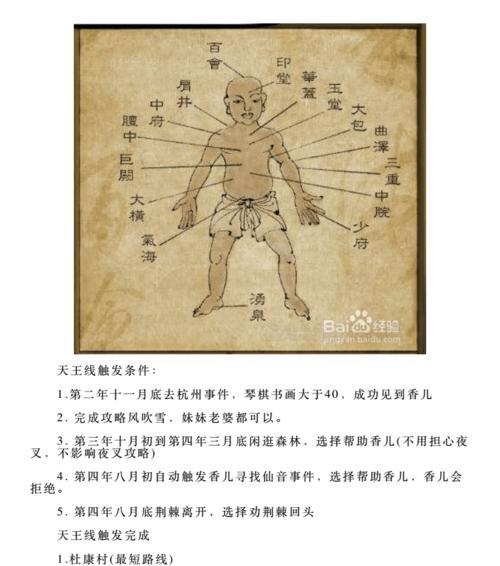 百會
印堂
華蓋
玉堂
大包
曲澤
三重
中脘
少府
肩井
中府
膻中
巨闕
大橫
氣海
湧泉
Baidu经验
天王线触发条件：
1.第二年十一月底去杭州事件，琴棋书画大于40，成功见到香儿
2. 完成攻略风吹雪，妹妹老婆都可以。
3. 第三年十月初到第四年三月底闲逛森林，选择帮助香儿(不用担心夜
叉，不影响夜叉攻略)
4. 第四年八月初自动触发香儿寻找仙音事件，选择帮助香儿，香儿会
拒绝。
5. 第四年八月底荆棘离开，选择劝荆棘回头
天王线触发完成
1.杜康村(最短路线)